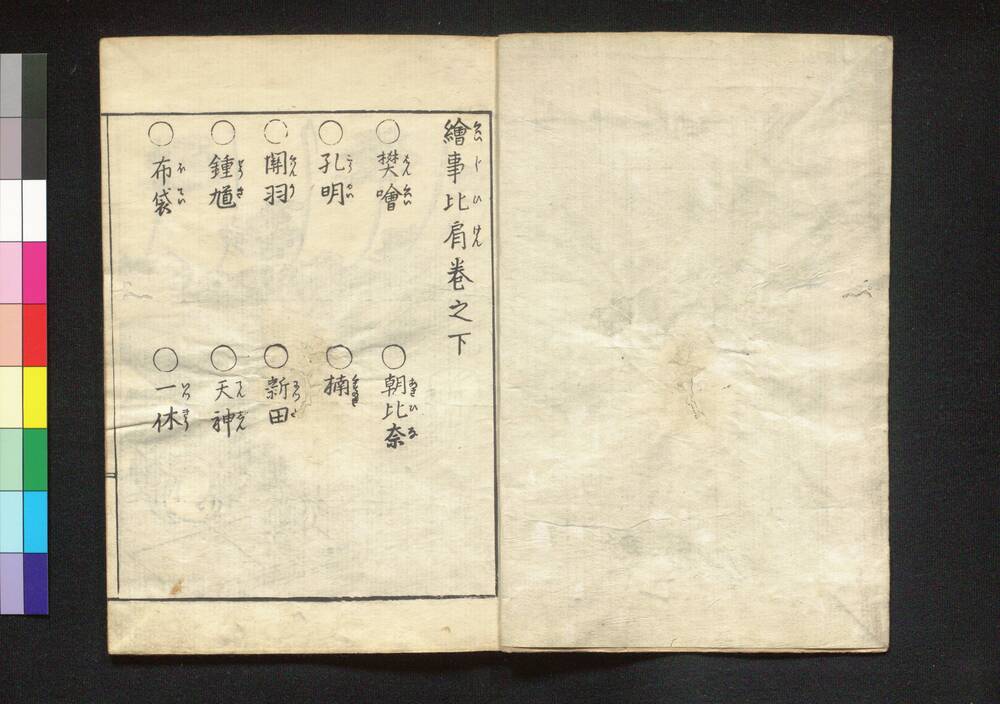 繪事比肩卷之下
○樊噲
○朝比奈
○孔明
○楠
○関羽
○新田
○鍾馗
○天神
○布袋
○一休